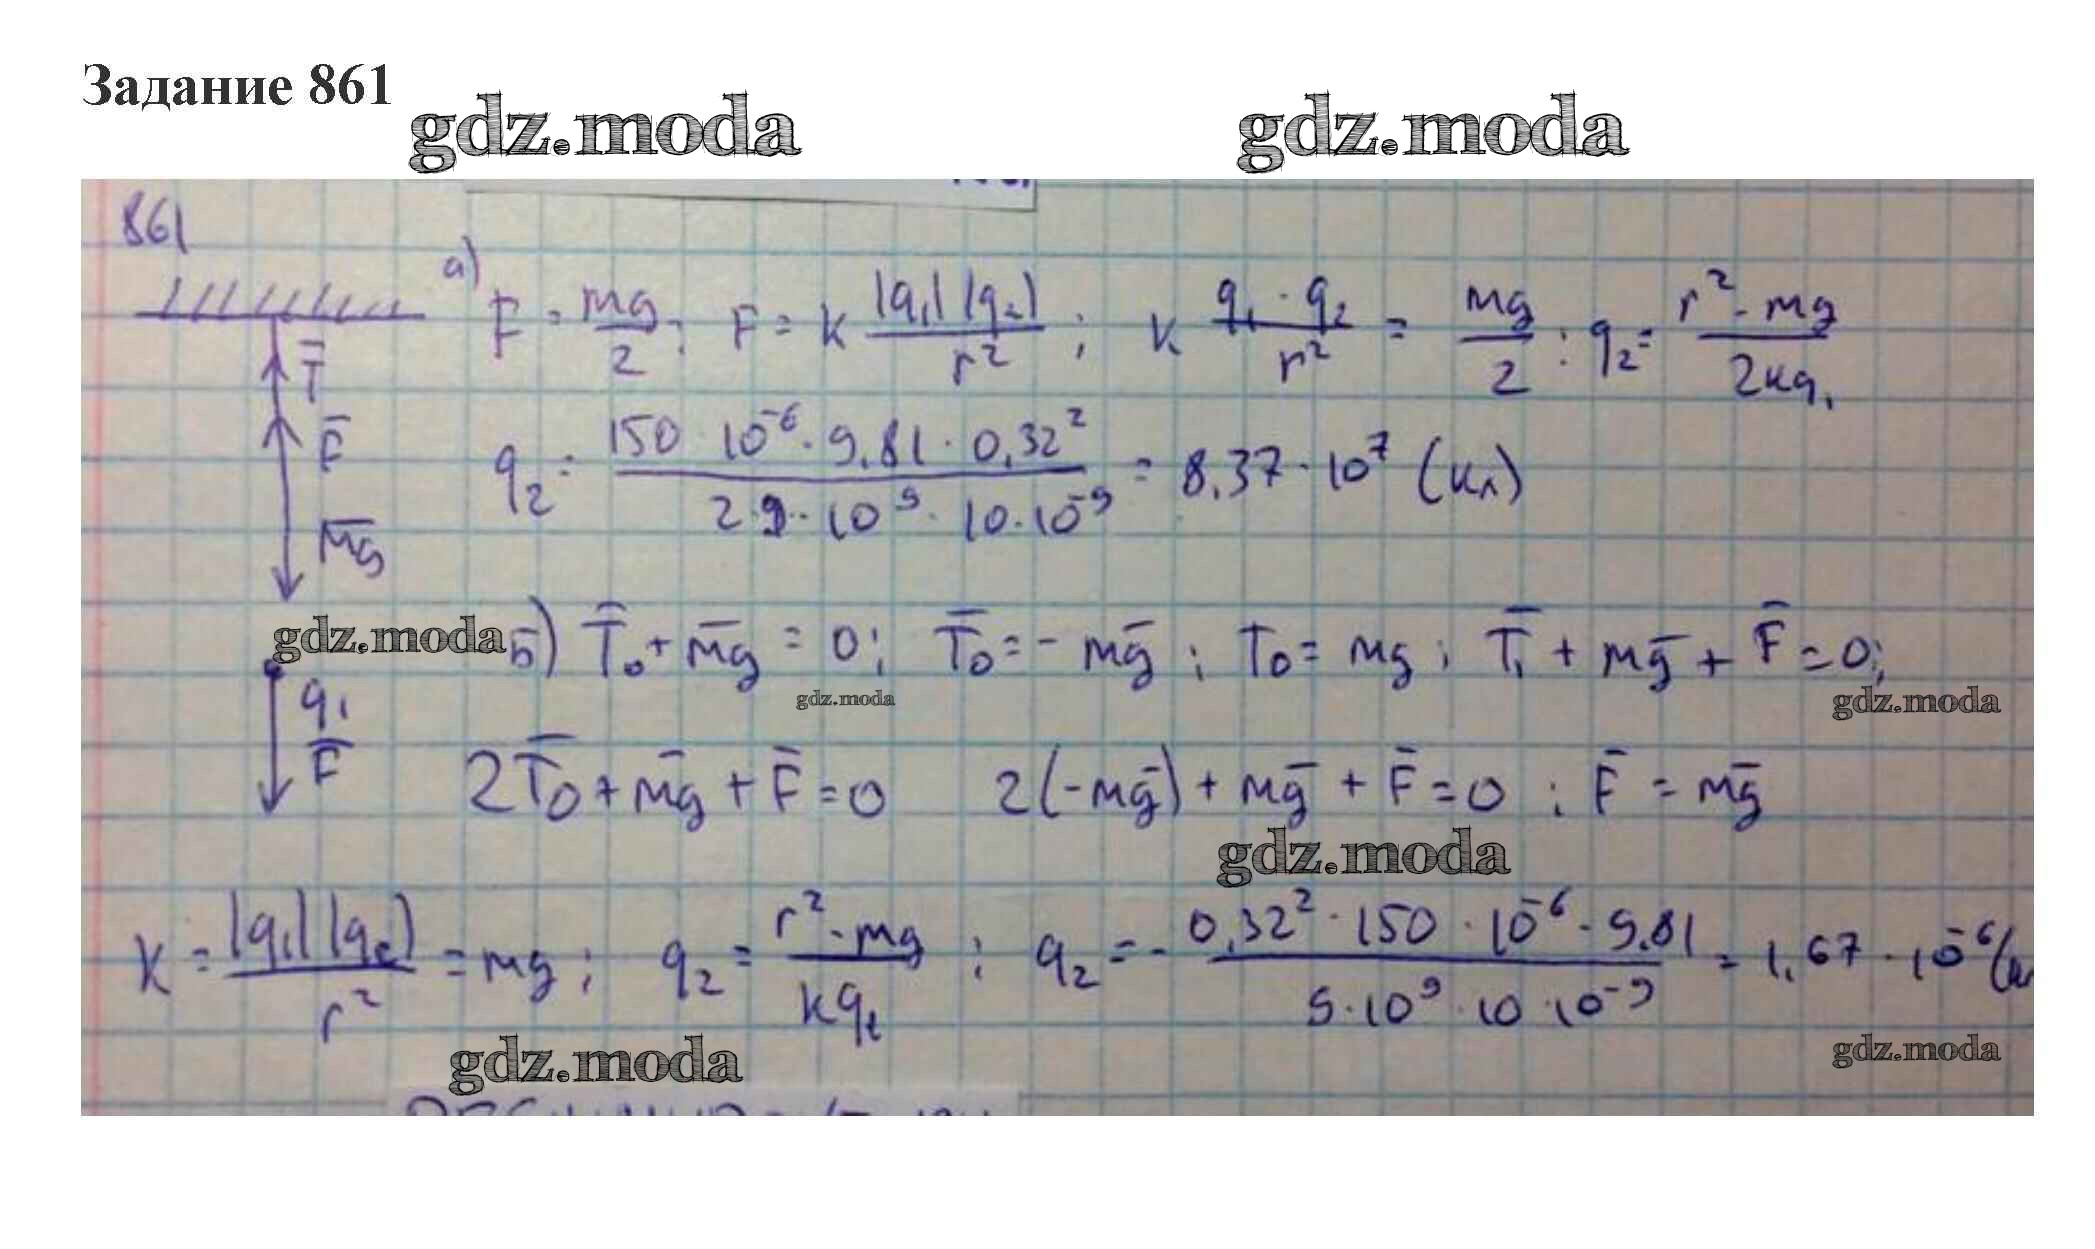 Задание 861
gdz.moda gdz.moda
861
а) F = mg/2; F = k |q₁| |q₂| / r²; k q₁ · q₂ / r² = mg/2 : q₂ = r² · mg / 2kq₁
T̄
F̄
m̄g
q₂ = 150 · 10⁻⁶ · 9,81 · 0,32² / 2·9 · 10⁹ · 10 · 10⁻⁹ = 8,37 · 10⁷ (кл)
gdz.moda
б) T̄₀ + mḡ = 0; T̄₀ = - mḡ; T₀ = mg; T̄₁ + mḡ + F̄ = 0;
gdz.moda gdz.moda
q₁
F̄
2T̄₀ + mḡ + F̄ = 0 2(-mḡ) + mḡ + F̄ = 0; F̄ = mḡ
gdz.moda
k = |q₁| |q₂| / r² = mg; q₂ = r² · mg / kq₁; q₂ = - 0,32² · 150 · 10⁻⁶ · 9,81 / 9 · 10⁹ · 10 · 10⁻⁹ = 1,67 · 10⁻⁶ (к
gdz.moda gdz.moda